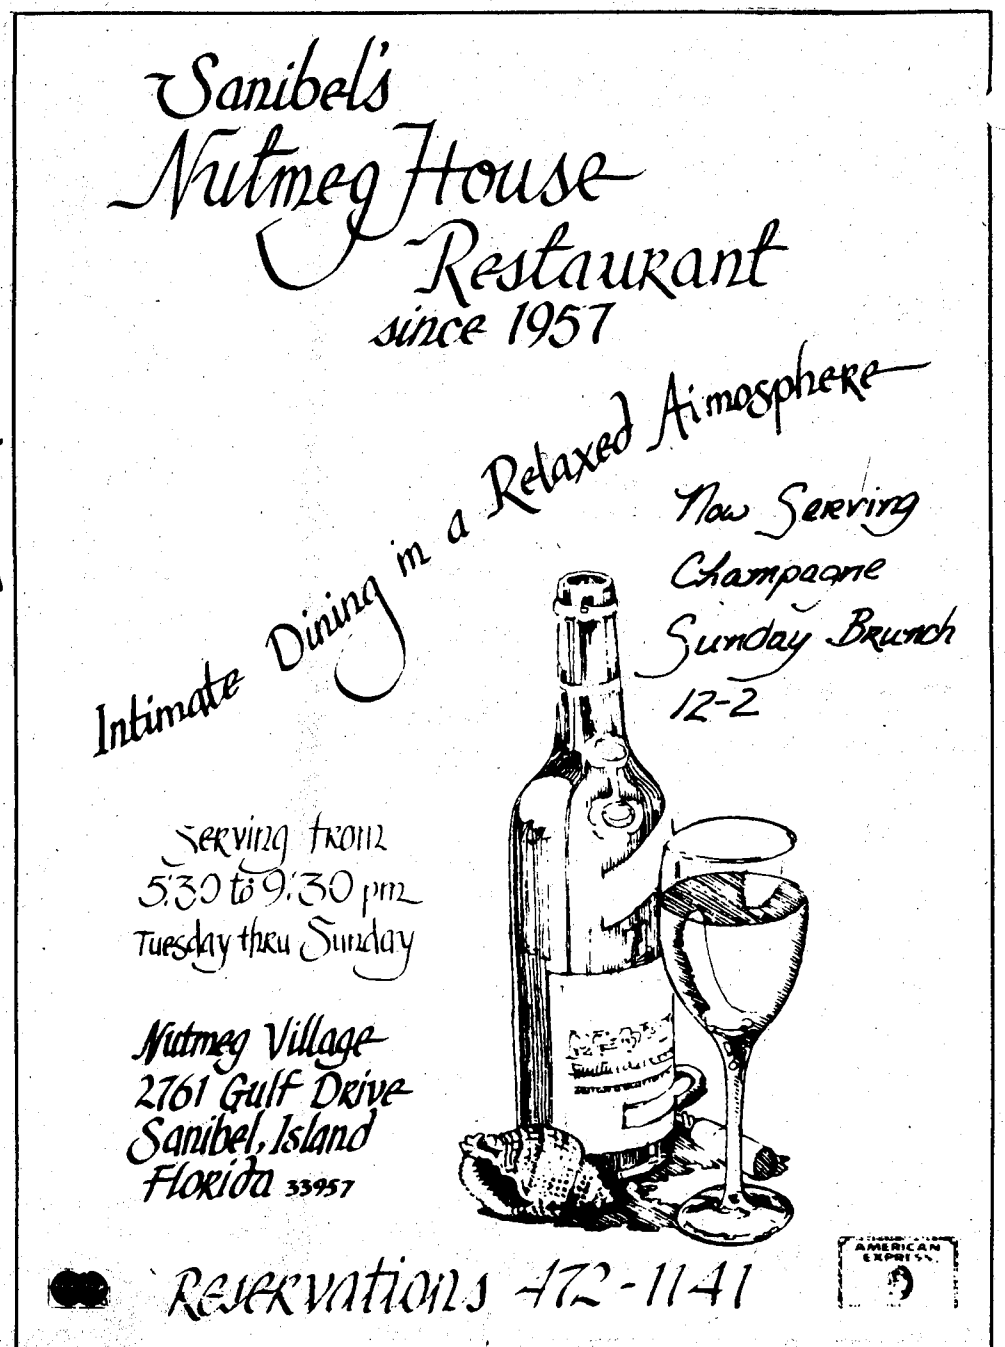 Sanibel's
Nutmeg House
Restaurant
since 1957
Intimate Dining in a Relaxed Atmosphere
Now Serving
Champagne
Sunday Brunch
12-2
Serving from
5:30 to 9:30 pm
Tuesday thru Sunday
Nutmeg Village
2761 Gulf Drive
Sanibel, Island
Florida 33957
Reservations 472-1141
AMERICAN
EXPRESS